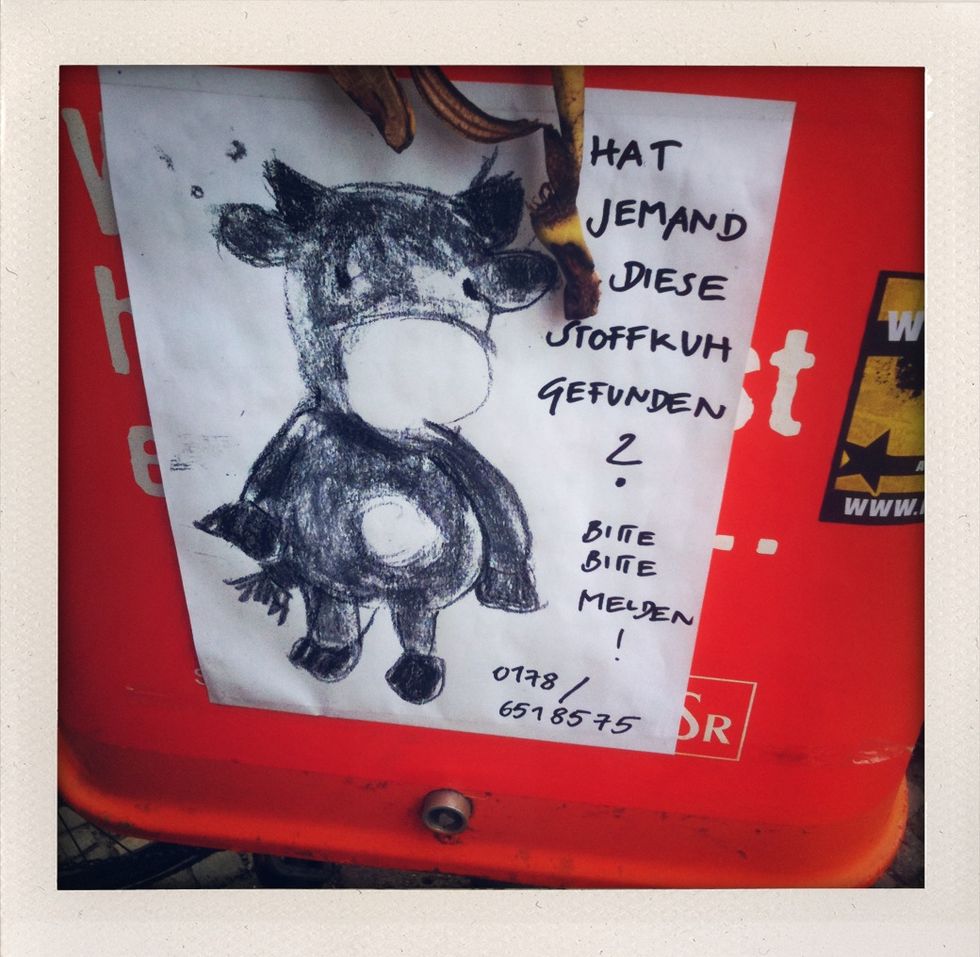 HAT
JEMAND
DIESE
STOFFKUH
GEFUNDEN
?
BITTE
BITTE
MELDEN
!
0178/
6518575
st
..
SR
W
WWW.